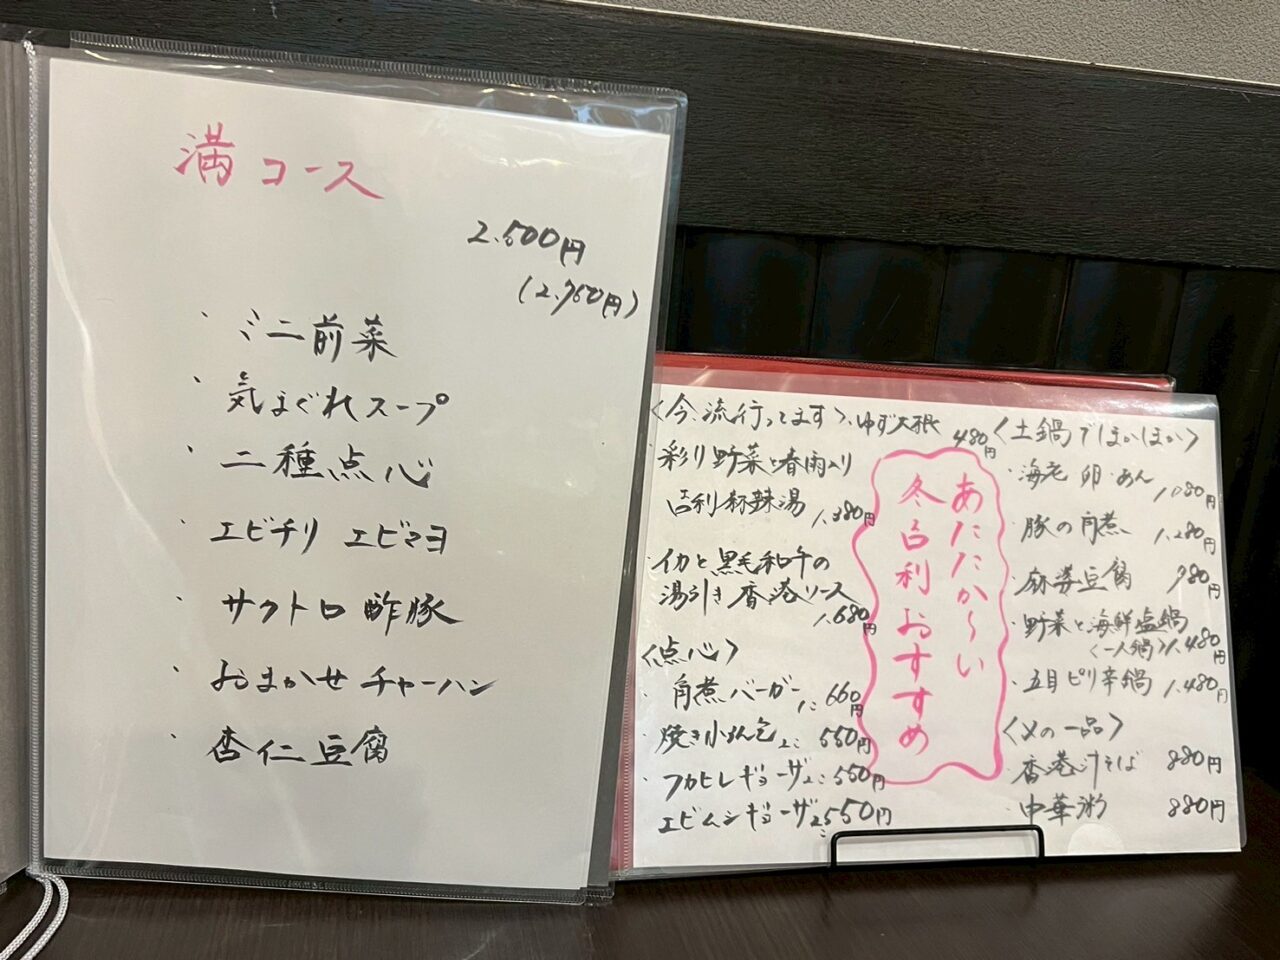 満コース
2.500円
(2.760円)
・ミニ前菜
・気まぐれスープ
・二種点心
・エビチリ エビマヨ
・サクトロ酢豚
・おまかせチャーハン
・杏仁豆腐
〈今、流行ってます〉
・ゆず大根
480円
・彩り野菜と春雨入り
吉利麻辣湯 1.380円
・イカと黒毛和牛の
湯引き香港ソース
1.680円
〈点心〉
・角煮バーガー 1コ 660円
・焼き小籠包 2コ 550円
・フカヒレギョーザ 2コ 550円
・エビムシギョーザ 2コ 550円
あたたか〜い
冬吉利おすすめ
〈土鍋でほかほか〉
・海老 卵 あん 1.080円
・豚の角煮 1.280円
・麻婆豆腐 980円
・野菜と海鮮塩鍋
〈一人鍋〉1.480円
・五目ピリ辛鍋 1.480円
〈〆の一品〉
・香港汁そば 880円
・中華粥 880円